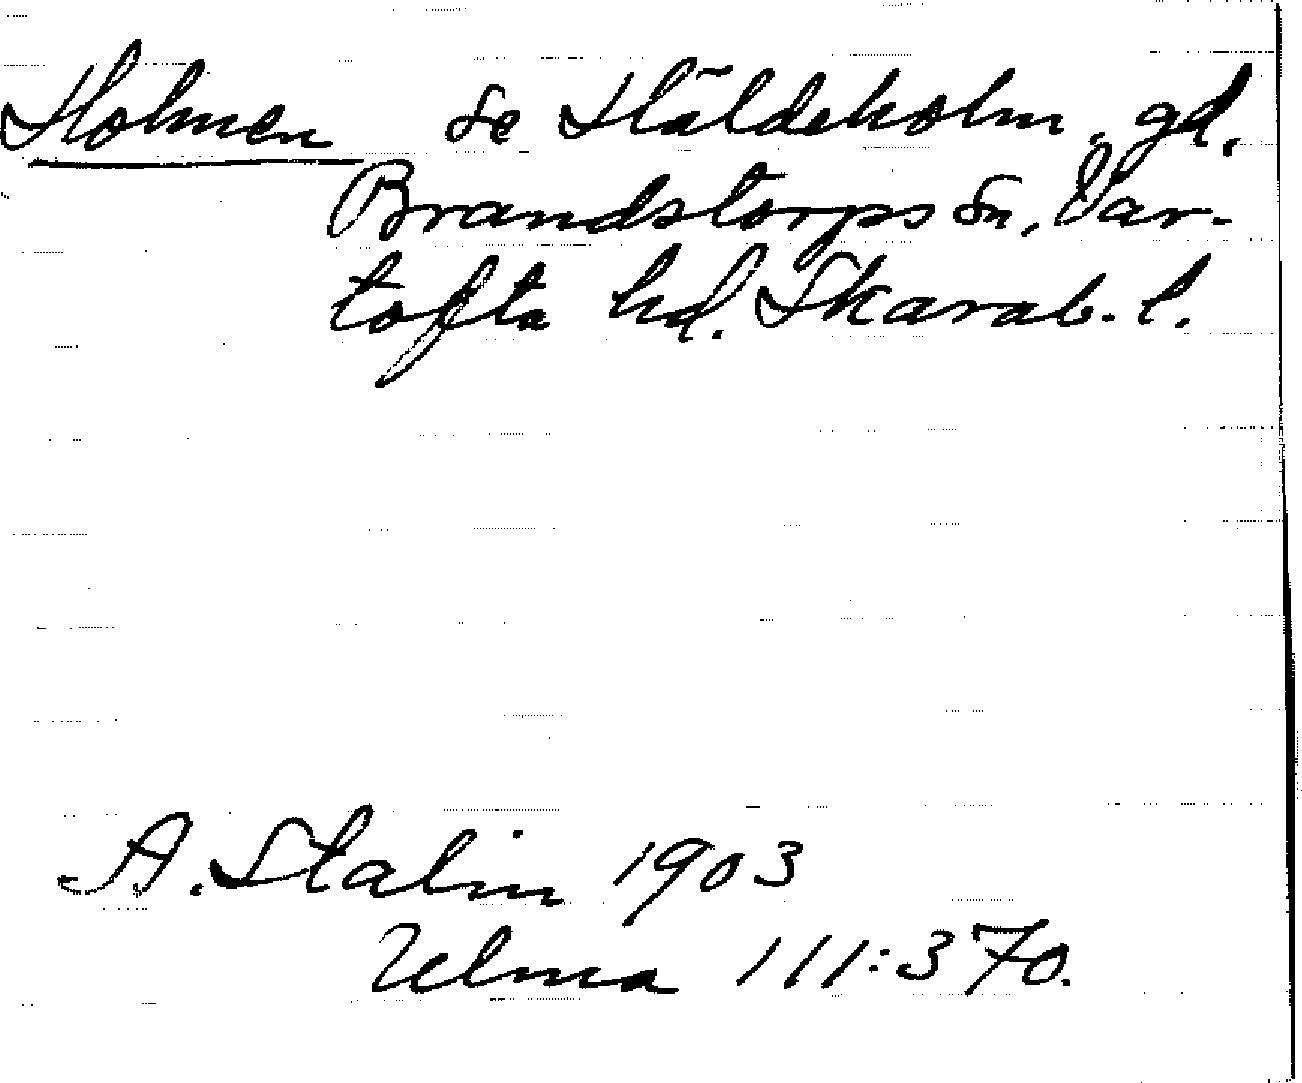 Holmen Se Häldeholm, gd.
Brandstorps sn, Var-
tofta hd. Skarab. l.
A. Stalin 1903
Ulma 111:370.